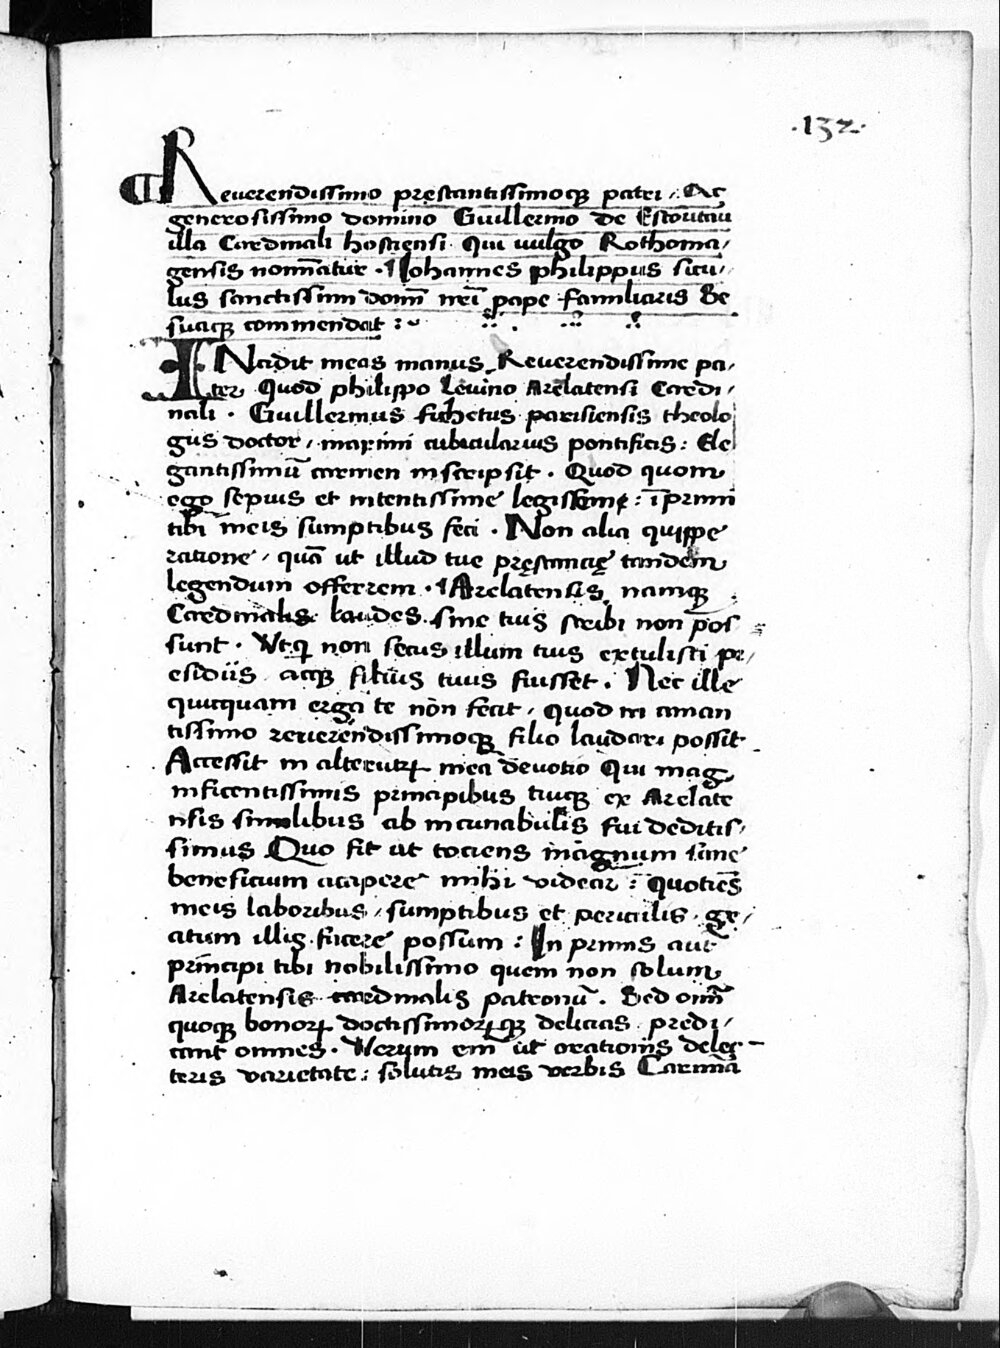 ·132·
Reuerendissimo prestantissimoqȝ patri / Ac
generosissimo domino Guillermo de Estoutau
illa Cardinali hostiensi · Qui uulgo Rothoma/
gensis nominatur · Iohannes philippus sicu/
lus sanctissimi domī nrī pape familiaris Se
suaqȝ commendat :~
INcidit meas manus Reuerendissime pa/
ter Quod philippo Leuino Arelatensi Cardi/
nali · Guillermus fichetus parisiensis theolo
gus doctor / maximi cubicularius pontificis : Ele
gantissimū carmen inscripsit · Quod quom
ego sepius et intentissime legissem : īprimi
tibi meis sumptibus feci · Non alia quippe
ratione / quā ut illud tue pręstancię tandem
legendum offerrem · Arelatensis namqȝ
Cardinalis laudes sine tuis scribi non pos
sunt · Vtqȝ non secus illum tuis extulisti pr/
esidiis acqȝ filius tuus fuisset · Nec ille
quicquam erga te non fecit / quod in aman
tissimo reuerendissimoqȝ filio laudari possit
Accessit in alterutrꝝ mea deuotio Qui mag
nificentissimis principibus tuiqȝ ex Arelate
nsis similibus ab incunabulis fui deditis/
simus Quo fit ut tociens magnum sane
beneficium accipere mihi videar : quotiēs
meis laboribus / sumptibus et periculis gr/
atum illis facere possum : In primis aut
principi tibi nobilissimo quem non solum
Arelatensis cardinalis patronū · Sed omī
quoqȝ bonorꝝ doctissimorꝝqȝ delicias predi/
cant omnes · Verum em̄ ut orationis delec
teris varietate : solutis meis verbis Carminā